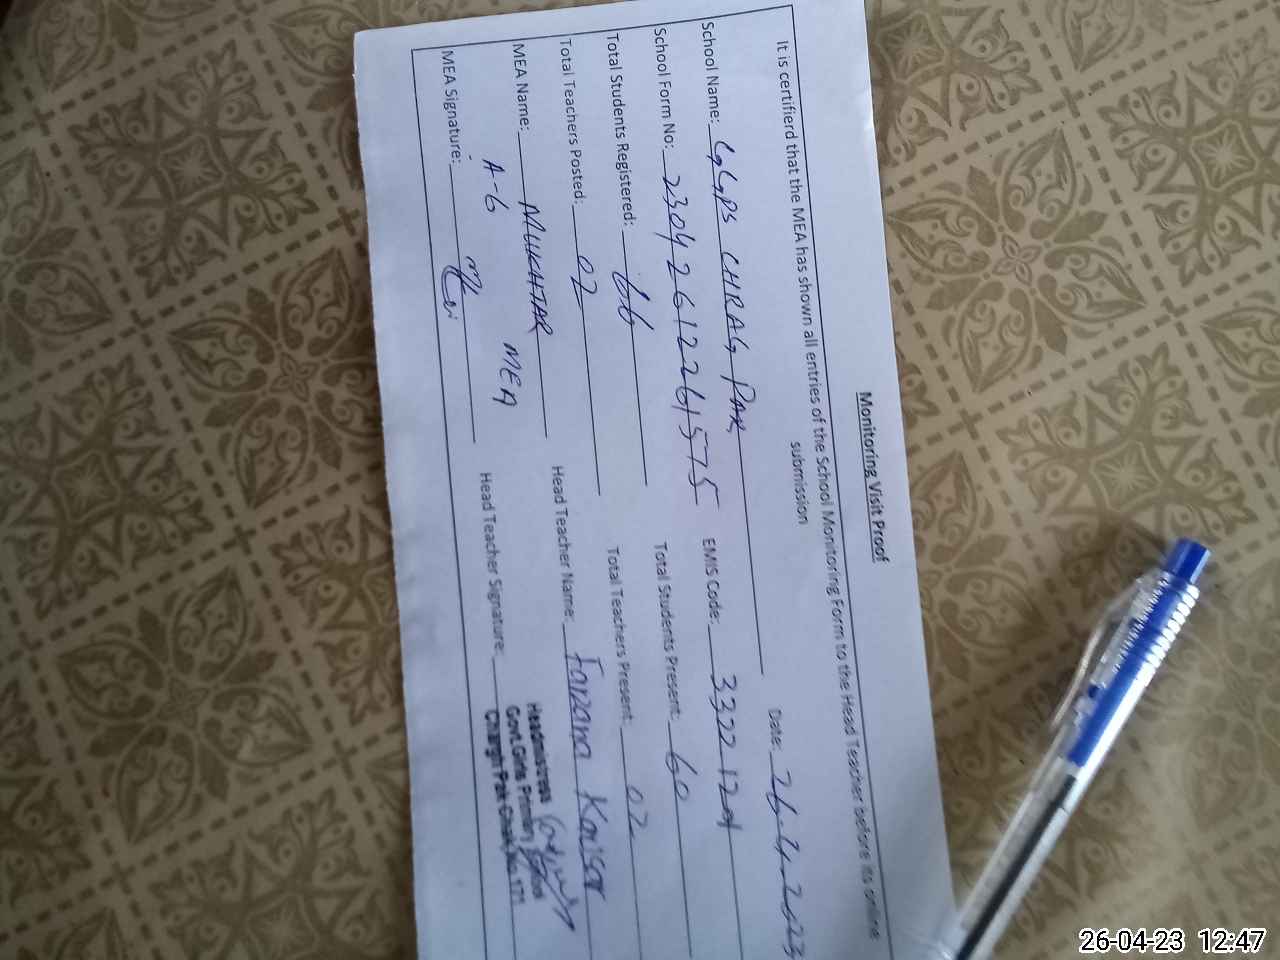 Monitoring Visit Proof
It is certifierd that the MEA has shown all entries of the School Monitoring Form to the Head Teacher before its online
submission
Date: 26-4-2023
School Name: GGPS CHRAG PAK
School Form No: 23042612261575 EMIS Code:
Total Students Registered: 66 Total Students Present: 60
Total Teachers Posted: 02 Total Teachers Present: 02
MEA Name: MUKHTAR Head Teacher Name: Farzana Kausar
A-6 MEA
MEA Signature: Head Teacher Signature:
Headmistress
Govt.Girls Primary School
Chiragh Pak Chak No. 171
26-04-23 12:47